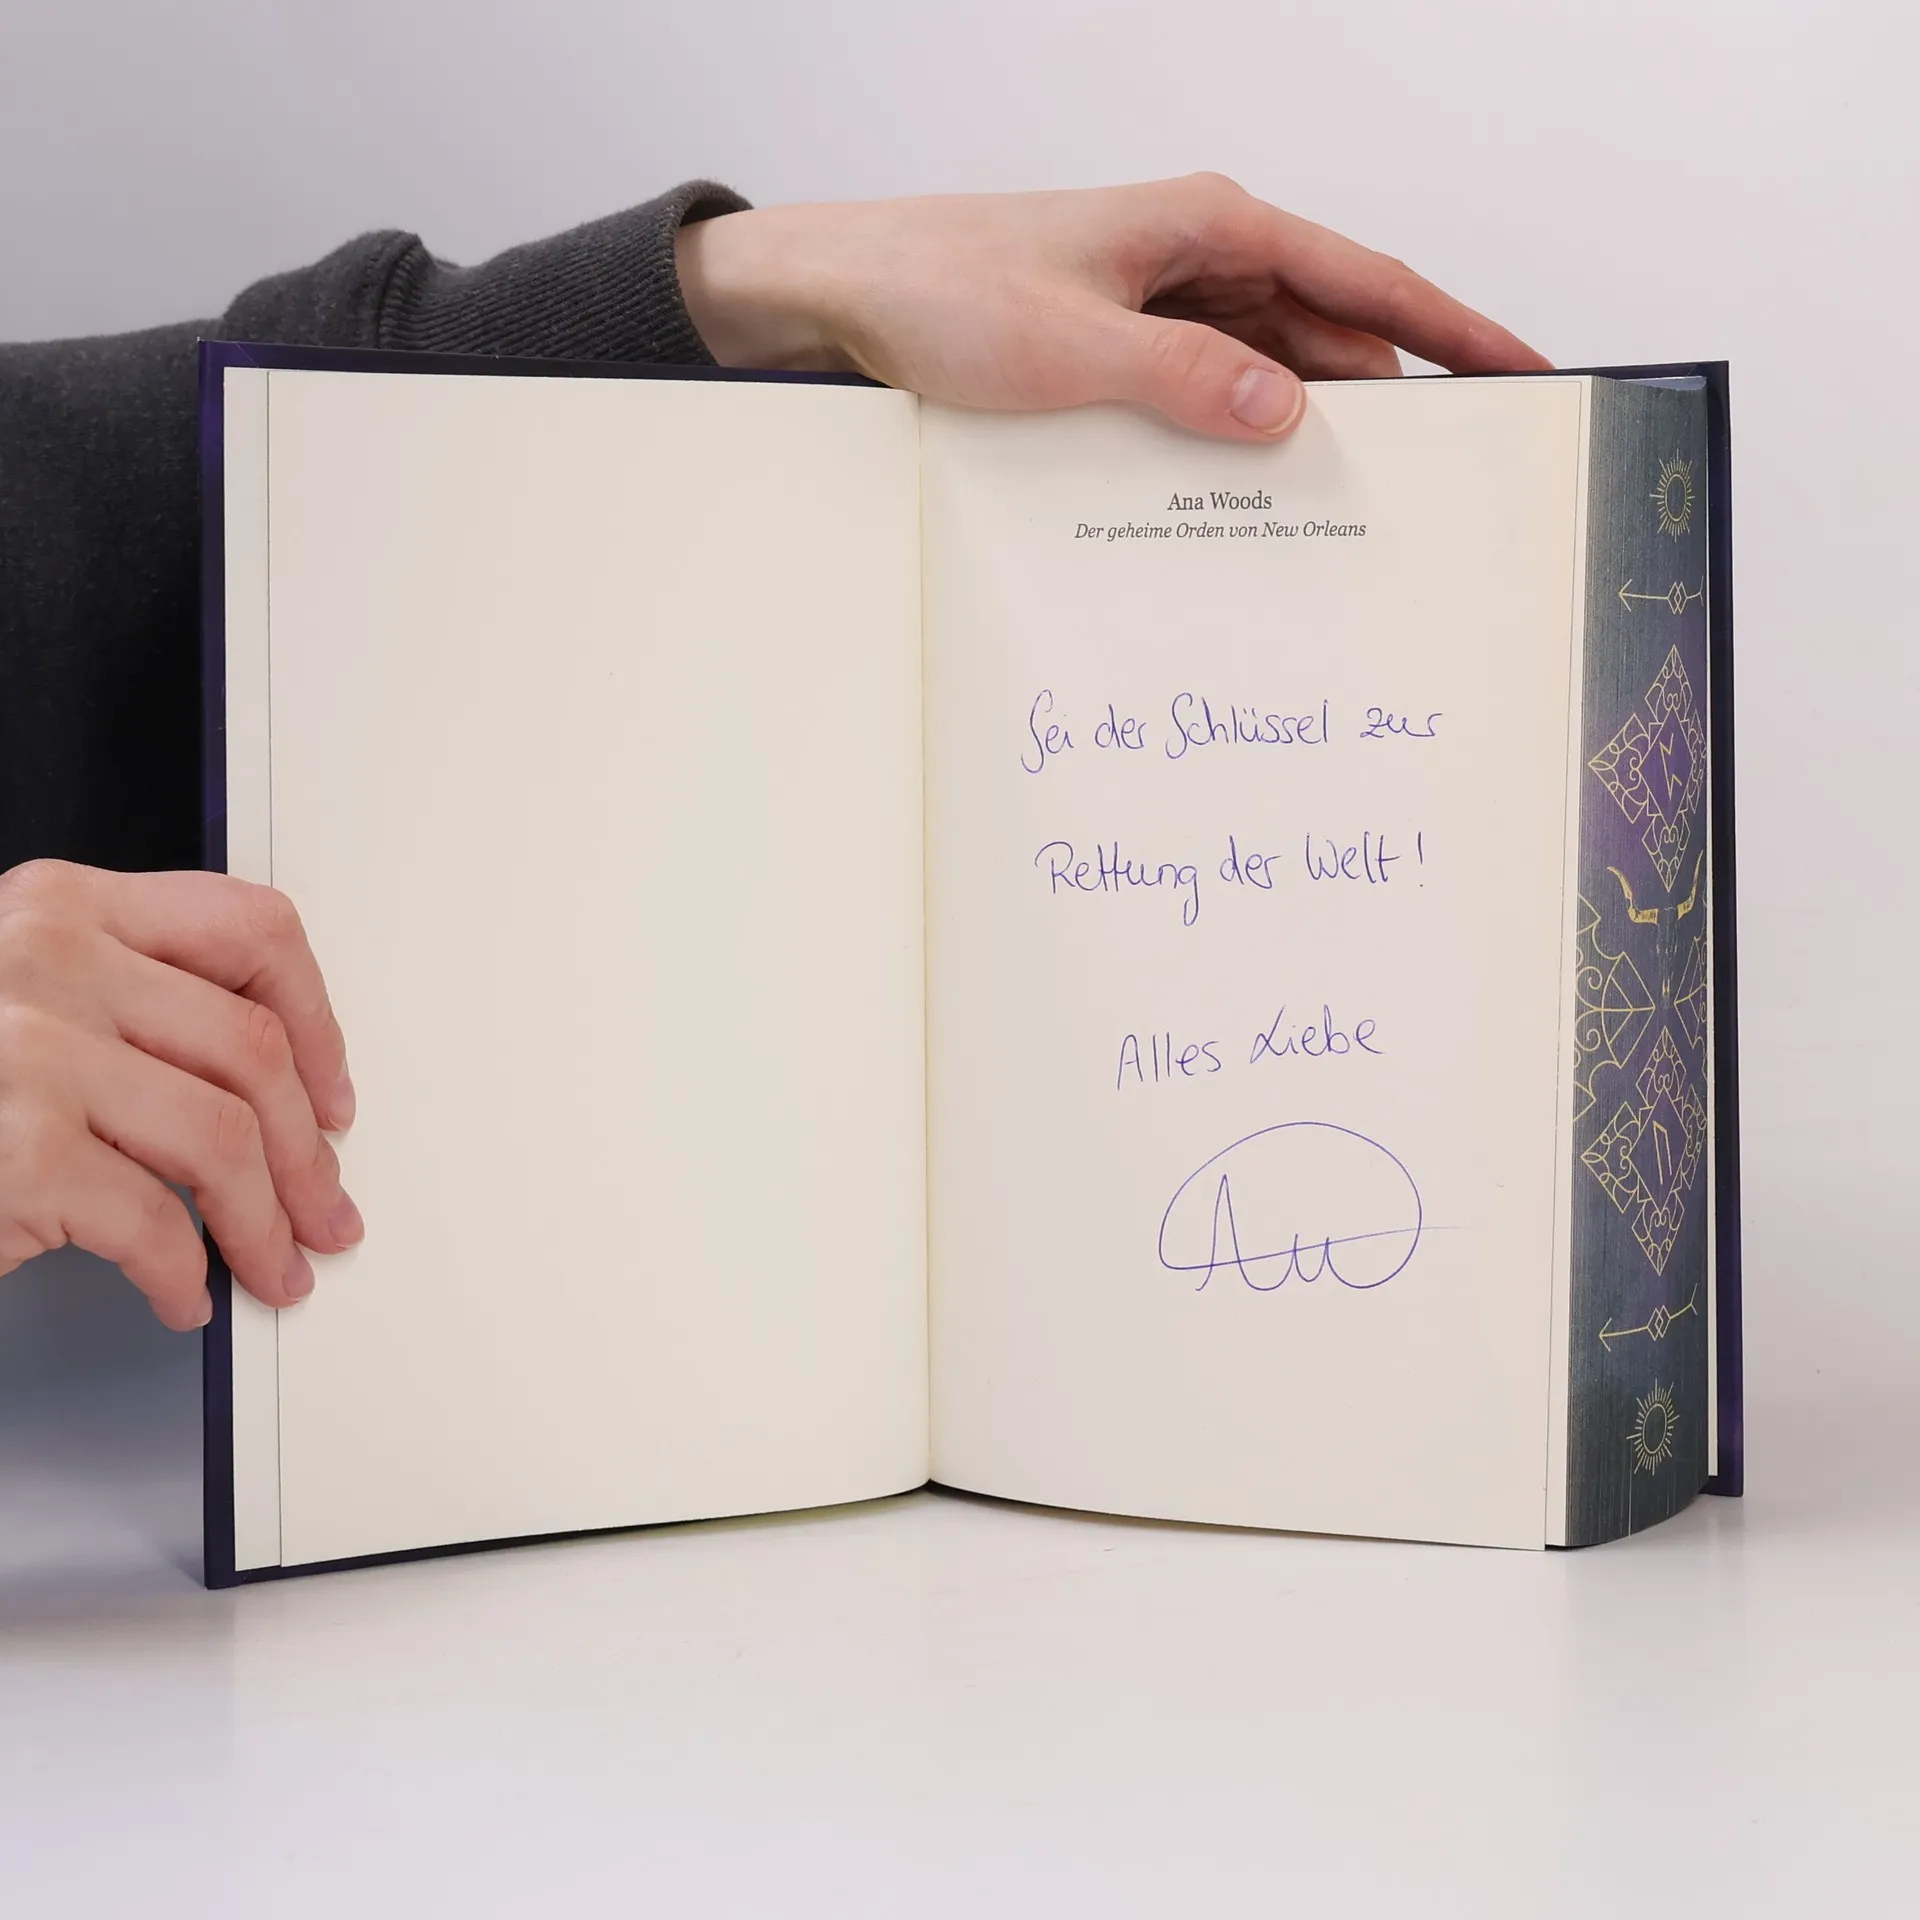 Ana Woods
Der geheime Orden von New Orleans
Sei der Schlüssel zur
Rettung der Welt!
Alles Liebe